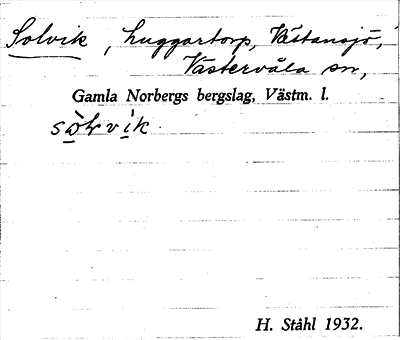 Solvik, huggartorp, Västansjö,
Västervåla sn,
Gamla Norbergs bergslag, Västm. l.
H. Ståhl 1932.